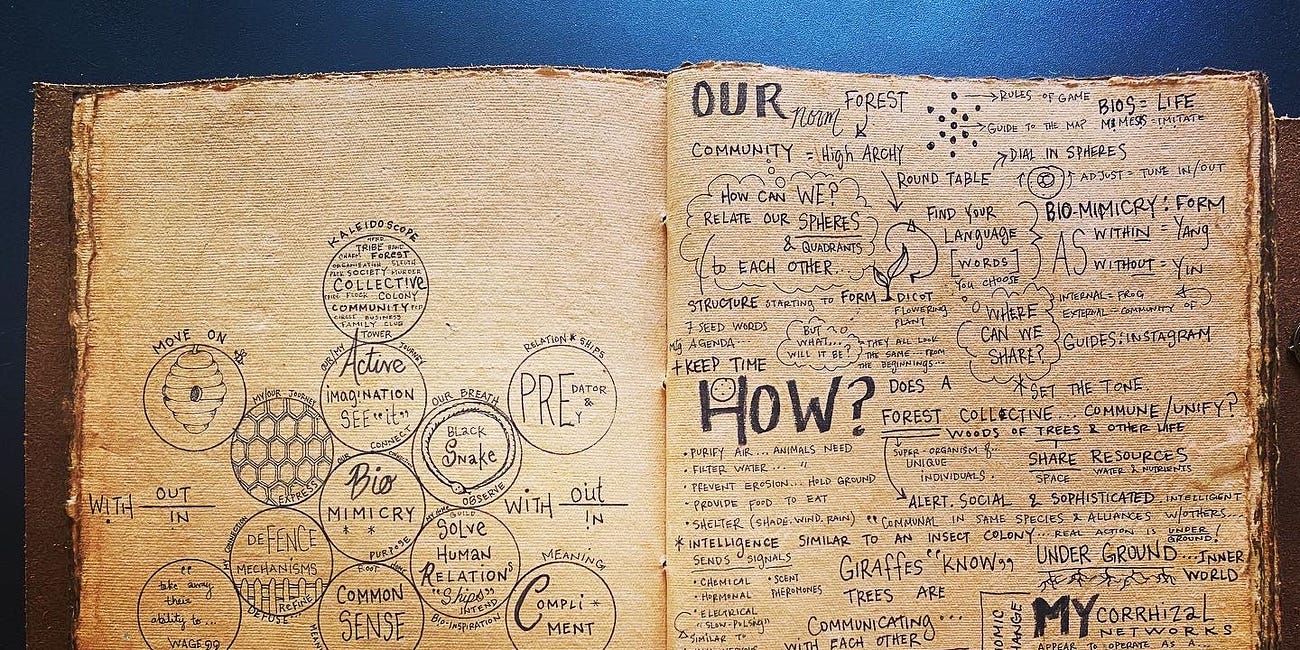 KALEIDOSCOPE
TRIBE
FOREST
SOCIETY MURDER
COLLECTIVE
FLOCK COLONY
COMMUNITY
CIRCLE BUSINESS
FAMILY CLUB
TOWER
MOVE ON
OUR/MY JOURNEY
Active
imagiNATION
SEE "it"
CONNECT
RELATION*SHIPS
PREDATOR
& Y
MY/OUR JOURNEY
EXPRESS
OUR BREATH
BLACK
Snake
OBSERVE
WITH OUT
IN
Bio
MIMICRY
* *
PURPOSE
WITH out
IN
DEFENCE
MECHANISMS
REFINE
DEFUSE
Solve
Human
RELATIONS
"Ships"
INTEND
BIO-INSPIRATION
MEANING
COMPLI*
MENT
"take away
their
ability to...
WAGE"
COMMON
SENSE
OUR norm FOREST
RULES OF GAME
BIOS = LIFE
GUIDE TO THE MAP
MIMESIS = IMITATE
COMMUNITY = High ARCHY
DIAL IN SPHERES
ROUND TABLE
ADJUST = TUNE IN/OUT
HOW CAN WE?
RELATE OUR SPHERES
& QUADRANTS
to EACH OTHER..
FIND YOUR
LANGUAGE
[WORDS]
YOU CHOOSE
BIO-MIMICRY: FORM
AS WITHIN = Yang
WITHOUT = YIN
STRUCTURE STARTING to FORM
DICOT
FLOWERING
PLANT
INTERNAL = FROG
EXTERNAL = COMMUNITY OF
7 SEED WORDS
My AGENDA...
+KEEP TIME
BUT
WHAT...
WILL IT BE?
THEY ALL LOOK
THE SAME...FROM
THE BEGINNINGS...
WHERE
CAN WE
SHARE?
GUIDES: INSTAGRAM
*SET THE TONE.
HOW? DOES A
FOREST COLLECTIVE... COMMUNE/UNIFY?
WOODS OF TREES & OTHER LIFE
• PURIFY AIR... ANIMALS NEED
• FILTER WATER... "
• PREVENT EROSION... HOLD GROUND
• PROVIDE FOOD TO EAT
• SHELTER (SHADE. WIND. RAIN)
SUPER-ORGANISM of
UNIQUE
INDIVIDUALS.
SHARE RESOURCES
WATER & NUTRIENTS
SPACE
ALERT. SOCIAL & SOPHISTICATED.. INTELLIGENT
"COMMUNAL IN SAME SPECIES & ALLIANCES W/OTHERS...
*INTELLIGENCE SIMILAR TO AN INSECT COLONY... REAL ACTION IS UNDER
GROUND!
SENDS SIGNALS
• CHEMICAL • SCENT
• HORMONAL PHEROMONES
• ELECTRICAL
"SLOW-PULSING"
SIMILAR TO
GIRAFFES "KNOW"
TREES ARE
COMMUNICATING...
WITH EACH OTHER
UNDER GROUND... INNER
WORLD
MYCORRHIZAL
NETWORKS
APPEAR TO OPERATE AS A...